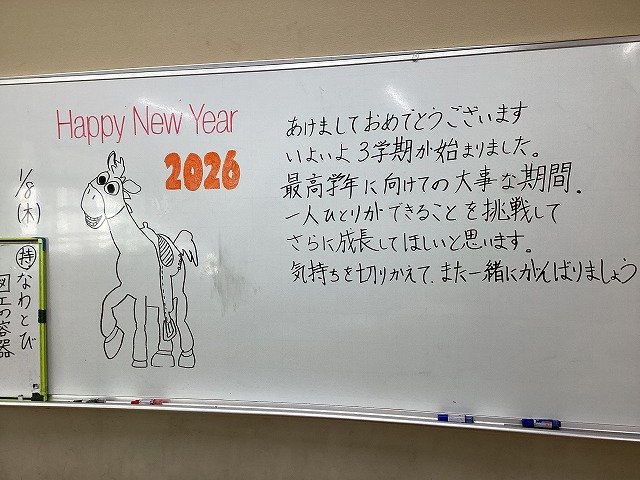 Happy New Year
2026
あけましておめでとうございます
いよいよ3学期が始まりました。
最高学年に向けての大事な期間。
一人ひとりができることを挑戦して
さらに成長してほしいと思います。
気持ちを切りかえて、また一緒にがんばりましょう
1/8(木)
持 なわとび
図工の容器